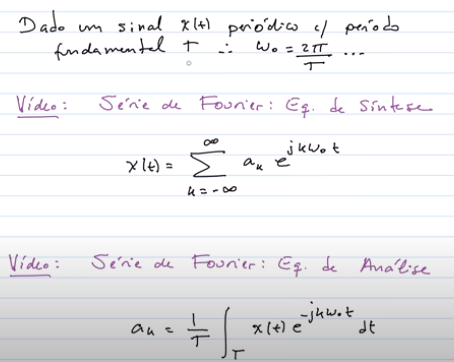 Dado um sinal x(t) periódico c/ período
fundamental T ∴ ω₀ = 2π/T ...
Vídeo: Série de Fourier: Eq. de Síntese
x(t) = ∑_{k=-∞}^{∞} a_k e^{jkω₀t}
Vídeo: Série de Fourier: Eq. de Análise
a_k = 1/T ∫_T x(t) e^{-jkω₀t} dt